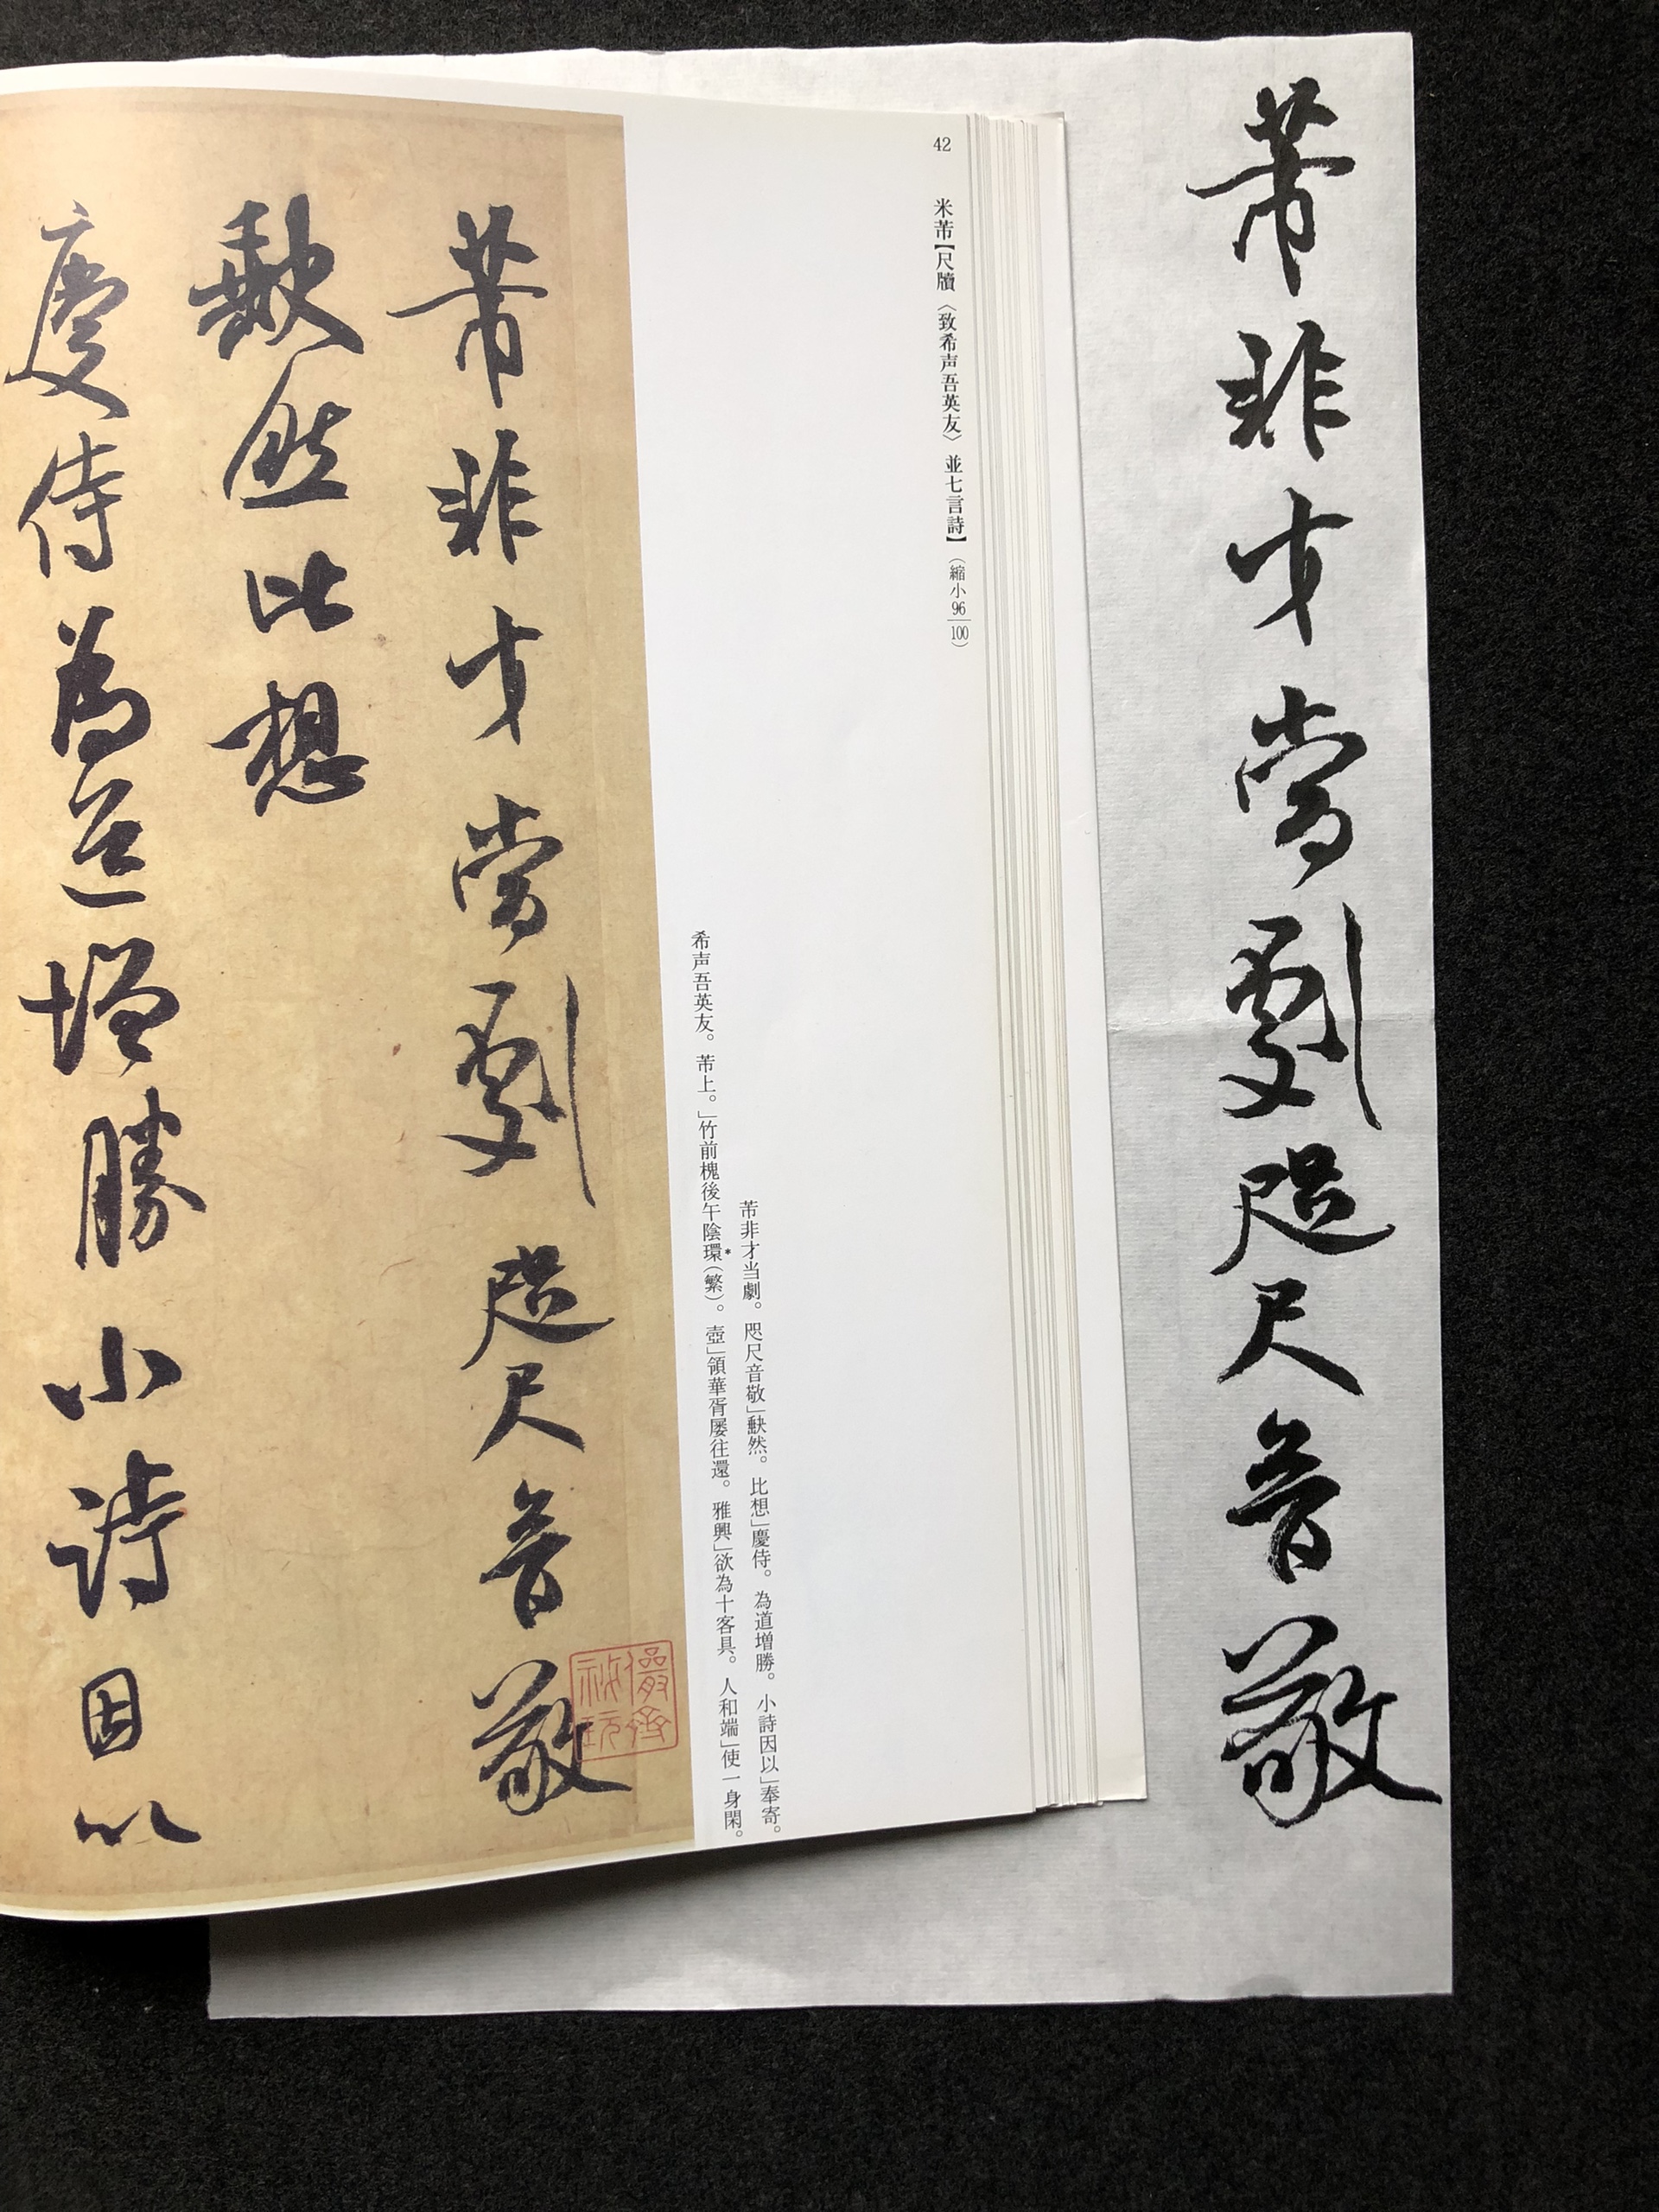 芾非才当劇咫尺音敬
42
米芾【尺牘〈致希声吾英友〉並七言詩】（縮小96/100）
芾非才当劇。咫尺音敬」缺然。比想」慶侍。為道増勝。小詩因以」奉寄。
希声吾英友。芾上。」竹前槐後午陰環*（繁）。壺」領華胥屡往還。雅興」欲為十客具。人和端」使一身閑。
芾非才当劇咫尺音敬
缺然比想
慶侍為道増勝小詩因以